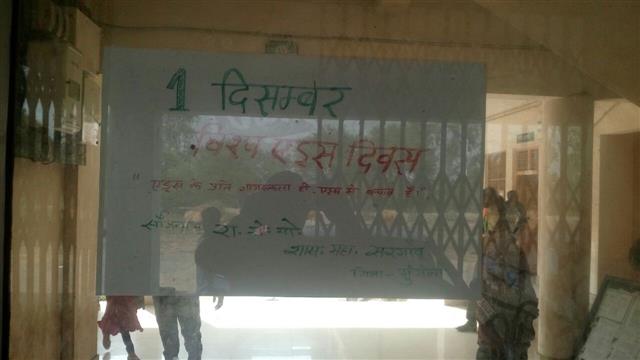 1 दिसम्बर
विश्व एड्स दिवस
"एड्स के प्रति जागरूकता ही एड्स से बचाव है।"
सौजन्य - रा. से. यो.
शास. महा. सरगांव
जिला - मुंगेली